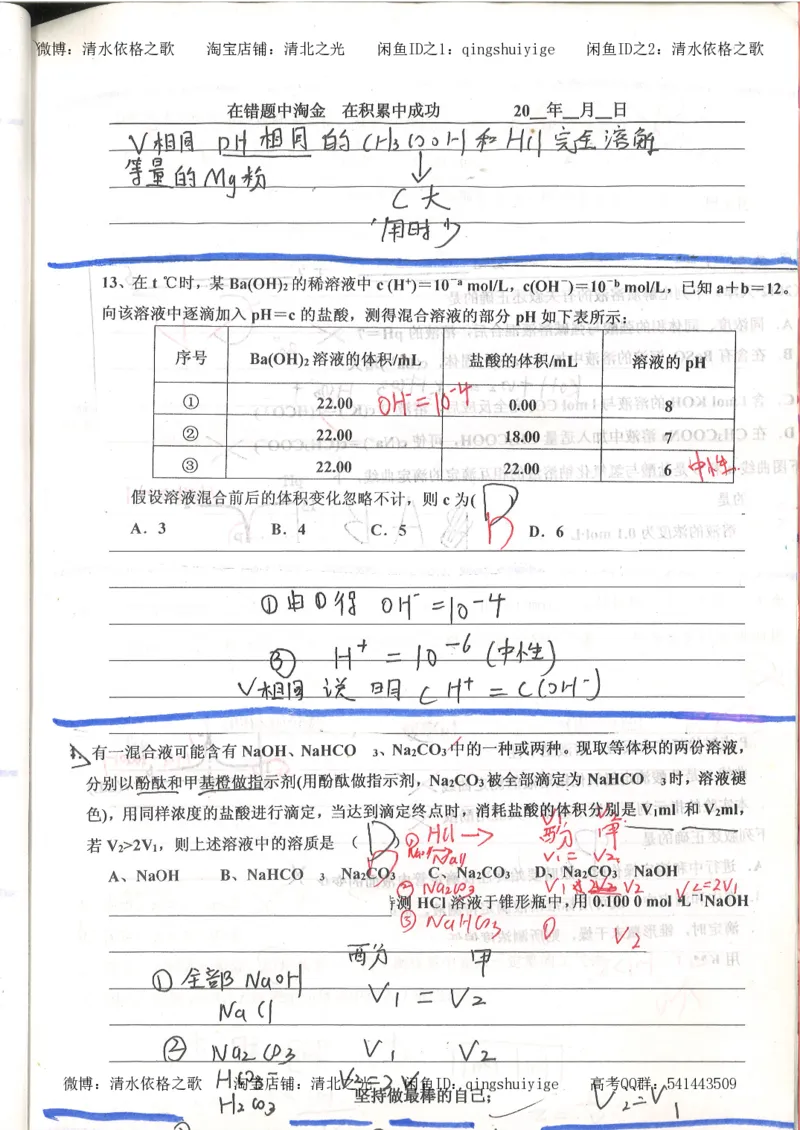 微博：清水依格之歌 淘宝店铺：清北之光 闲鱼ID之1：qingshuiyige 闲鱼ID之2：清水依格之歌
在错题中淘金 在积累中成功 20__年__月__日
V相同 pH相同的CH3COOH和HCl完全溶解
等量的Mg粉
↓
C大
用时少
13、在 t ℃时，某 Ba(OH)₂的稀溶液中 c (H⁺)＝10⁻ᵃ mol/L，c(OH⁻)＝10⁻ᵇ mol/L，已知 a＋b＝12。
向该溶液中逐滴加入 pH＝c 的盐酸，测得混合溶液的部分 pH 如下表所示：
序号 Ba(OH)₂溶液的体积/mL 盐酸的体积/mL 溶液的 pH
① 22.00 OH⁻=10⁻⁴ 0.00 8
② 22.00 18.00 7
③ 22.00 22.00 6 中性
假设溶液混合前后的体积变化忽略不计，则 c 为( D ) B
A．3 B．4 C．5 D．6
①由①得 OH⁻=10⁻⁴
③ H⁺=10⁻⁶ (中性)
V相同 说明 C H⁺ = C(OH⁻)
有一混合液可能含有 NaOH、NaHCO ₃、Na₂CO₃中的一种或两种。现取等体积的两份溶液，
分别以酚酞和甲基橙做指示剂(用酚酞做指示剂，Na₂CO₃被全部滴定为 NaHCO ₃时，溶液褪
色)，用同样浓度的盐酸进行滴定，当达到滴定终点时，消耗盐酸的体积分别是 V₁ml 和 V₂ml，
若 V₂>2V₁，则上述溶液中的溶质是 （ D ） ① HCl → 酚 甲
NaOH→NaCl V₁= V₂
A、NaOH B、NaHCO ₃ Na₂CO₃ C、Na₂CO₃ D、Na₂CO₃ NaOH
② Na₂CO₃ V₁ V₂ V₂=2V₁
待测 HCl 溶液于锥形瓶中，用 0.100 0 mol·L⁻¹NaOH
③ NaHCO₃ 0 V₂
酚 甲
①全部NaOH V₁ = V₂
NaCl
② Na₂CO₃ V₁ V₂
HCO₃⁻ V₂=2V₁
微博：清水依格之歌 淘宝店铺：清北之光 闲鱼ID：qingshuiyige 高考QQ群：541443509
坚持做最棒的自己；
H₂CO₃ V₂=V₁